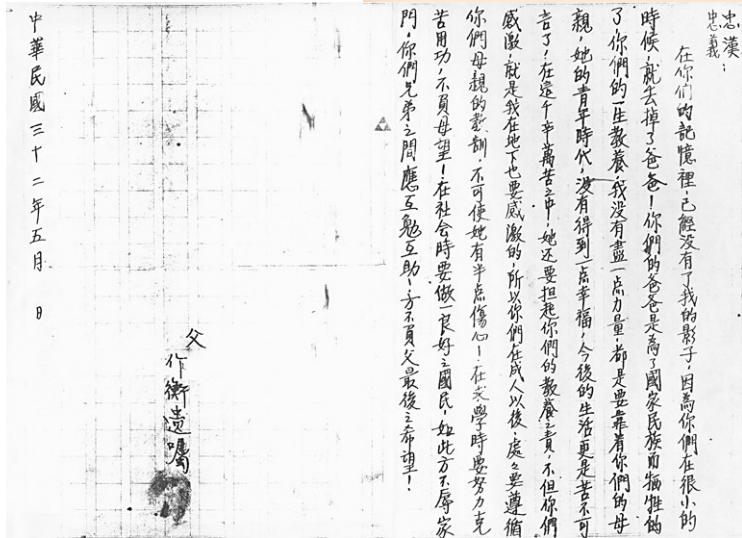 忠漢：
忠義
在你们的記憶裡，已經没有了我的影子，因為你們在很小的
時候，就去掉了爸爸！你們的爸爸是為了國家民族而犧牲的
了你們的一生教養，我没有盡一点力量，都是要靠着你們的母
親，她的青年時代，没有得到一点幸福，今後的生活更是苦不可
言了，在這千辛萬苦之中，她还要担起你們的教養之責，不但你們
感激，就是我在地下也要感激的，所以你們在成人以後，處々要遵循
你們母親的教訓，不可使她有半点傷心！在求學時要努力克
苦用功，不負母望！在社会時要做一良好之國民，如此方不辱家
門，你們兄弟之間應互勉互助，方不負父最後之希望！
父
作衡遺囑
中華民國三十二年五月 日